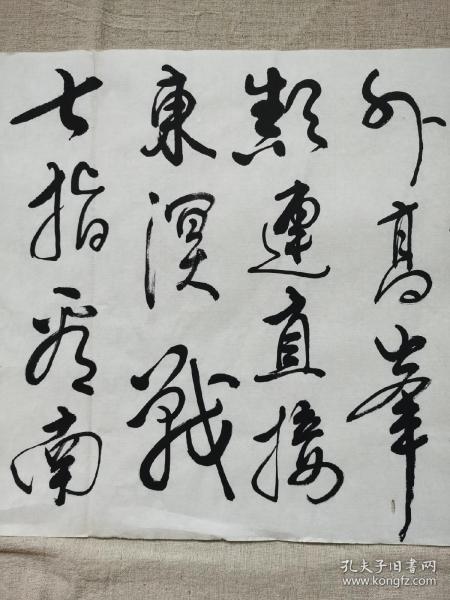 外高峯
顛連直接
東溟戰
士指看南
孔夫子旧书网
www.kongfz.com